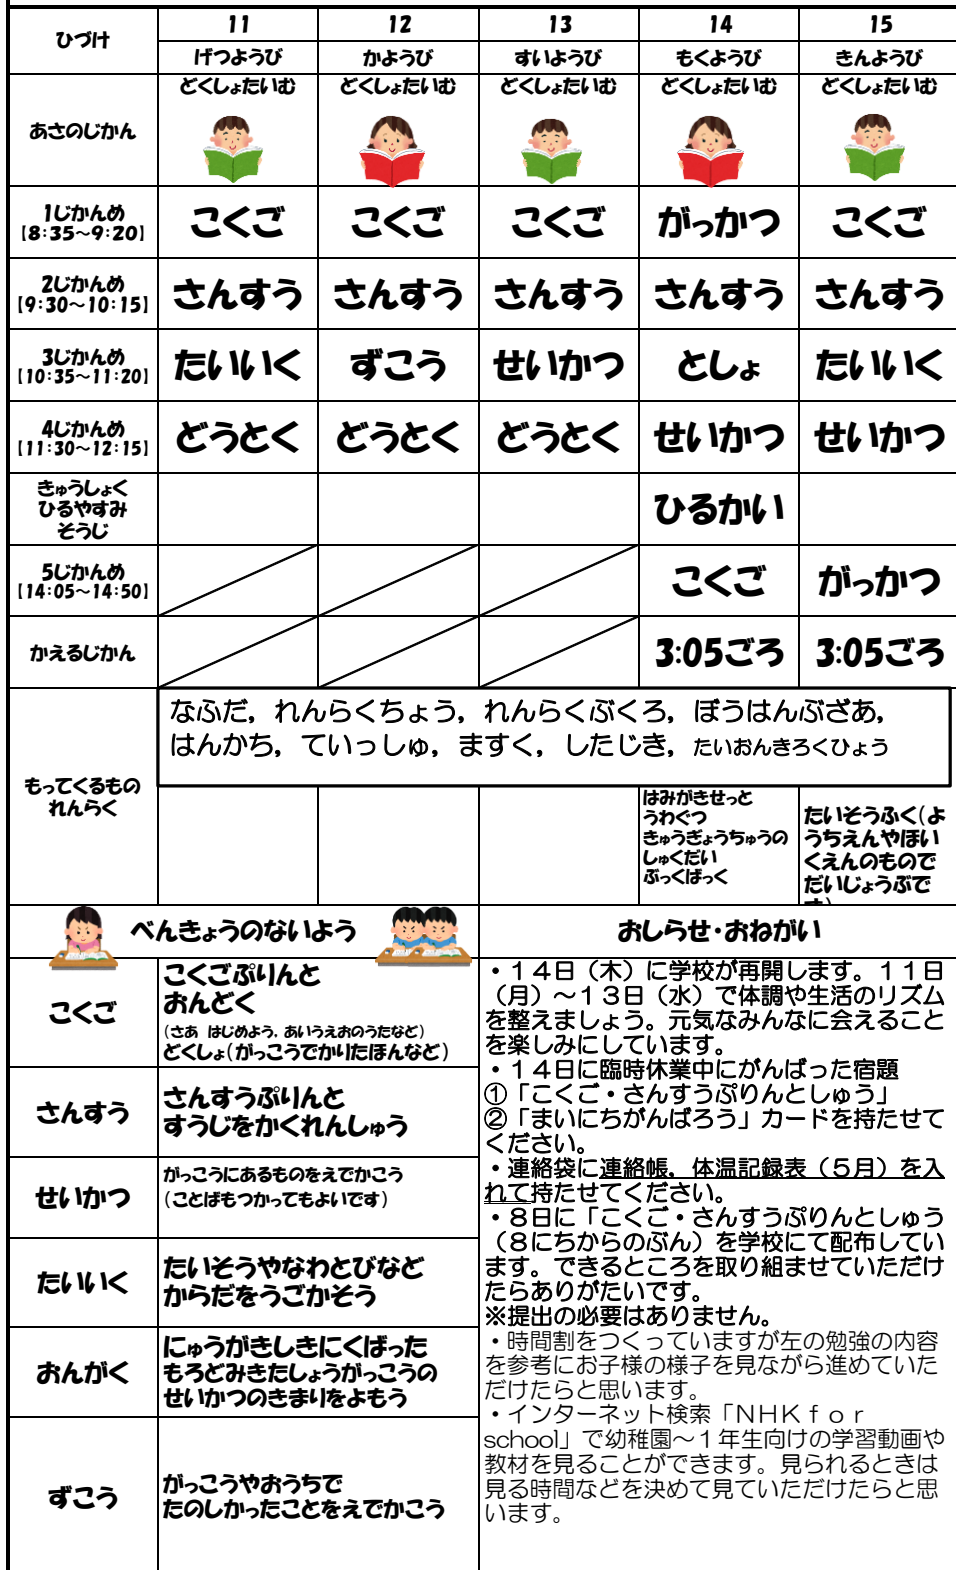 ひづけ 11 12 13 14 15
げつようび かようび すいようび もくようび きんようび
あさのじかん どくしょたいむ どくしょたいむ どくしょたいむ どくしょたいむ どくしょたいむ
1じかんめ こくご こくご こくご がっかつ こくご
【8:35～9:20】
2じかんめ さんすう さんすう さんすう さんすう さんすう
【9:30～10:15】
3じかんめ たいいく ずこう せいかつ としょ たいいく
【10:35～11:20】
4じかんめ どうとく どうとく どうとく せいかつ せいかつ
【11:30～12:15】
きゅうしょく
ひるやすみ ひるかい
そうじ
5じかんめ こくご がっかつ
【14:05～14:50】
かえるじかん 3:05ごろ 3:05ごろ
もってくるもの
れんらく
なふだ，れんらくちょう，れんらくぶくろ，ぼうはんぶざあ，
はんかち，ていっしゅ，ますく，したじき，たいおんきろくひょう
はみがきせっと
うわぐつ
きゅうぎょうちゅうの
しゅくだい
ぶっくばっく
たいそうふく(よ
うちえんやほい
くえんのもので
だいじょうぶで
べんきょうのないよう
こくご
こくごぷりんと
おんどく
(さあ はじめよう，あいうえおのうたなど)
どくしょ(がっこうでかりたほんなど)
さんすう
さんすうぷりんと
すうじをかくれんしゅう
せいかつ
がっこうにあるものをえでかこう
(ことばもつかってもよいです)
たいいく
たいそうやなわとびなど
からだをうごかそう
おんがく
にゅうがきしきにくばった
もろどみきたしょうがっこうの
せいかつのきまりをよもう
ずこう
がっこうやおうちで
たのしかったことをえでかこう
おしらせ・おねがい
・１４日（木）に学校が再開します。１１日
（月）～１３日（水）で体調や生活のリズム
を整えましょう。元気なみんなに会えること
を楽しみにしています。
・１４日に臨時休業中にがんばった宿題
①「こくご・さんすうぷりんとしゅう」
②「まいにちがんばろう」カードを持たせて
ください。
・連絡袋に連絡帳，体温記録表（５月）を入
れて持たせてください。
・８日に「こくご・さんすうぷりんとしゅう
（８にちからのぶん）を学校にて配布してい
ます。できるところを取り組ませていただけ
たらありがたいです。
※提出の必要はありません。
・時間割をつくっていますが左の勉強の内容
を参考にお子様の様子を見ながら進めていた
だけたらと思います。
・インターネット検索「ＮＨＫ ｆｏｒ
school」で幼稚園～１年生向けの学習動画や
教材を見ることができます。見られるときは
見る時間などを決めて見ていただけたらと思
います。